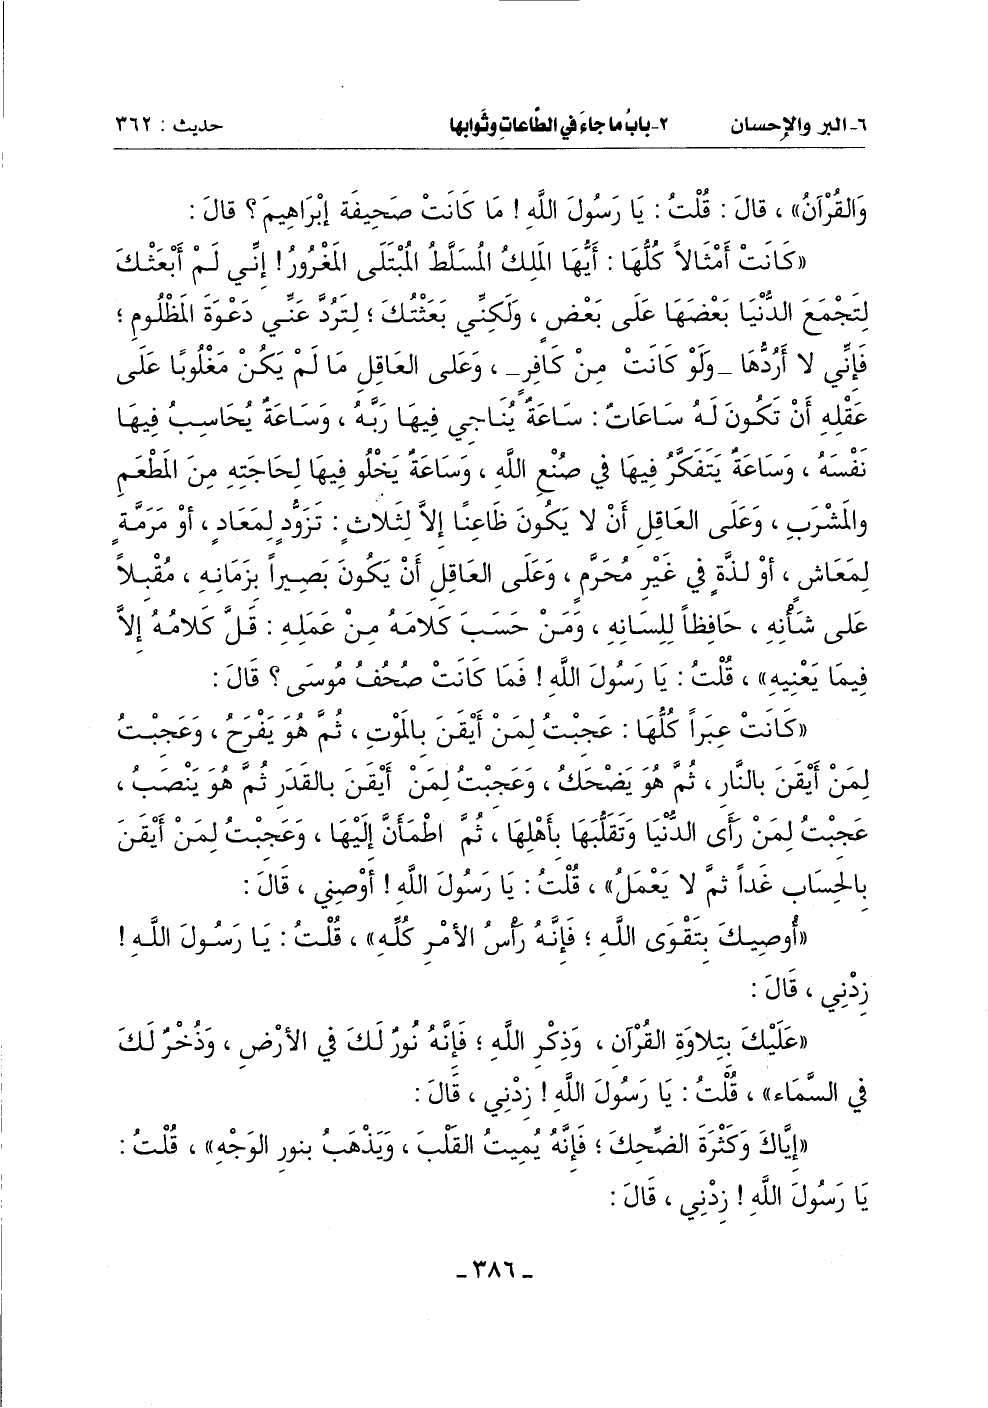 ٦- البر والإحسان ٢- بابُ ما جاءَ في الطَّاعاتِ وثَوابِها حديث : ٣٦٢
وَالقُرْآنُ» ، قالَ : قُلْتُ : يَا رَسُولَ اللَّهِ ! مَا كَانَتْ صَحِيفَة إبْرَاهِيمَ ؟ قالَ :
«كَانَتْ أَمْثَالاً كُلُّهَا : أَيُّهَا المَلِكُ المُسَلَّطُ المُبْتَلَى المَغْرُورُ ! إنِّي لَمْ أَبْعَثْكَ
لِتَجْمَعَ الدُّنْيَا بَعْضَهَا عَلَى بَعْضٍ ، وَلَكِنِّي بَعَثْتُكَ ؛ لِتَرُدَّ عَنِّي دَعْوَةَ المَظْلُومِ ؛
فَإنِّي لا أَرُدُّهَا _وَلَوْ كَانَتْ مِنْ كَافِرٍ_ ، وَعَلى العَاقِلِ مَا لَمْ يَكُنْ مَغْلُوبًا عَلَى
عَقْلِهِ أَنْ تَكُونَ لَهُ سَاعَاتٌ : سَاعَةٌ يُنَاجِي فِيهَا رَبَّهُ ، وَسَاعَةٌ يُحَاسِبُ فِيهَا
نَفْسَهُ ، وَسَاعَةٌ يَتَفَكَّرُ فِيهَا فِي صُنْعِ اللَّهِ ، وَسَاعَةٌ يَخْلُو فِيهَا لِحَاجَتِهِ مِنَ المَطْعَمِ
والمَشْرَبِ ، وَعَلَى العَاقِلِ أَنْ لا يَكُونَ ظَاعِنًا إلاَّ لِثَلاثٍ : تَزَوُّدٍ لِمَعَادٍ ، أوْ مَرَمَّةٍ
لِمَعَاشٍ ، أوْ لذَّةٍ فِي غَيْرِ مُحَرَّمٍ ، وَعَلَى العَاقِلِ أَنْ يَكُونَ بَصِيراً بزَمَانِهِ ، مُقْبلاً
عَلى شَأْنِهِ ، حَافِظاً لِلِسَانِهِ ، وَمَنْ حَسَبَ كَلامَهُ مِنْ عَمَلِهِ : قَلَّ كَلامُهُ إلاَّ
فِيمَا يَعْنِيهِ» ، قُلْتُ : يَا رَسُولَ اللَّهِ ! فَمَا كَانَتْ صُحُفُ مُوسَى ؟ قَالَ :
«كَانَتْ عِبَراً كُلُّهَا : عَجِبْتُ لِمَنْ أَيْقَنَ بِالمَوْتِ ، ثُمَّ هُوَ يَفْرَحُ ، وَعَجِبْتُ
لِمَنْ أَيْقَنَ بالنَّارِ ، ثُمَّ هُوَ يَضْحَكُ ، وَعَجِبْتُ لِمَنْ أَيْقَنَ بالقَدَرِ ثُمَّ هُوَ يَنْصَبُ ،
عَجِبْتُ لِمَنْ رَأَى الدُّنْيَا وَتَقَلُّبَهَا بأَهْلِهَا ، ثُمَّ اطْمَأَنَّ إلَيْهَا ، وَعَجِبْتُ لِمَنْ أَيْقَنَ
بالحِسَابِ غَداً ثمَّ لا يَعْمَلُ» ، قُلْتُ : يَا رَسُولَ اللَّهِ ! أوْصِنِي ، قَالَ :
«أُوصِيكَ بتَقْوَى اللَّهِ ؛ فَإنَّهُ رَأْسُ الأمْرِ كُلِّهِ» ، قُلْتُ : يَا رَسُولَ اللَّهِ !
زِدْنِي ، قَالَ :
«عَلَيْكَ بتِلاوَةِ القُرْآنِ ، وَذِكْرِ اللَّهِ ؛ فَإنَّهُ نُورٌ لَكَ فِي الأرْضِ ، وَذُخْرٌ لَكَ
فِي السَّمَاءِ» ، قُلْتُ : يَا رَسُولَ اللَّهِ ! زِدْنِي ، قَالَ :
«إيَّاكَ وَكَثْرَةَ الضَّحِكَ ؛ فَإنَّهُ يُمِيتُ القَلْبَ ، وَيَذْهَبُ بنورِ الوَجْهِ» ، قُلْتُ :
يَا رَسُولَ اللَّهِ ! زِدْنِي ، قَالَ :
ـ ٣٨٦ ـ